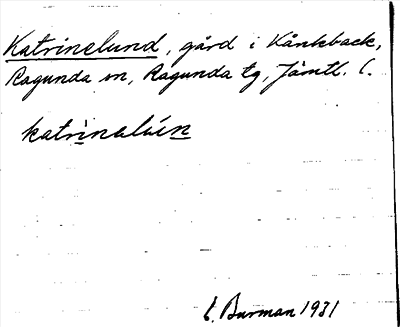 Katrinelund, gård i Kånkback,
Ragunda sn, Ragunda tg, Jämtl. l.
katrìnalún
C. Burman 1931